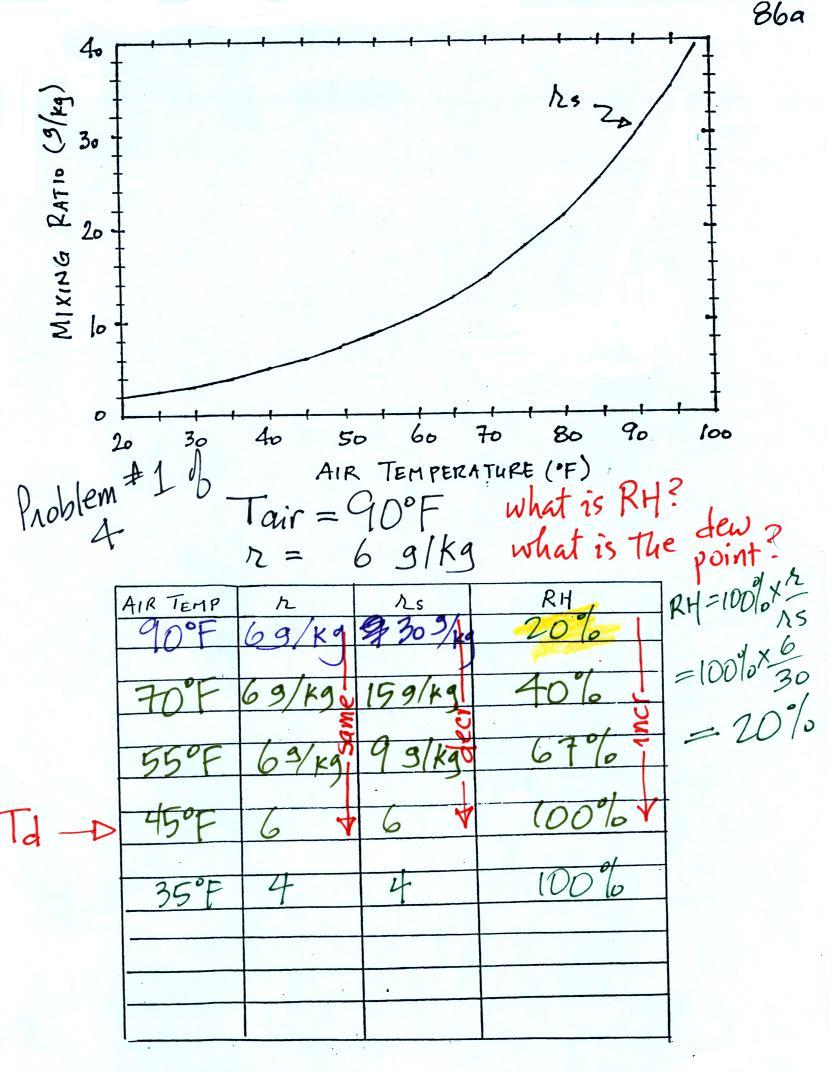 86a
40
30
20
10
0
MIXING RATIO (g/kg)
rs
20 30 40 50 60 70 80 90 100
AIR TEMPERATURE (°F)
Problem #1 of 4
Tair = 90°F
r = 6 g/kg
what is RH?
what is the dew point?
AIR TEMP r rs RH
90°F 6 g/kg 30 g/kg 20%
70°F 6 g/kg 15 g/kg 40%
55°F 6 g/kg 9 g/kg 67%
45°F 6 6 100%
35°F 4 4 100%
same
decr
incr
Td
RH = 100% x r/rs
= 100% x 6/30
= 20%